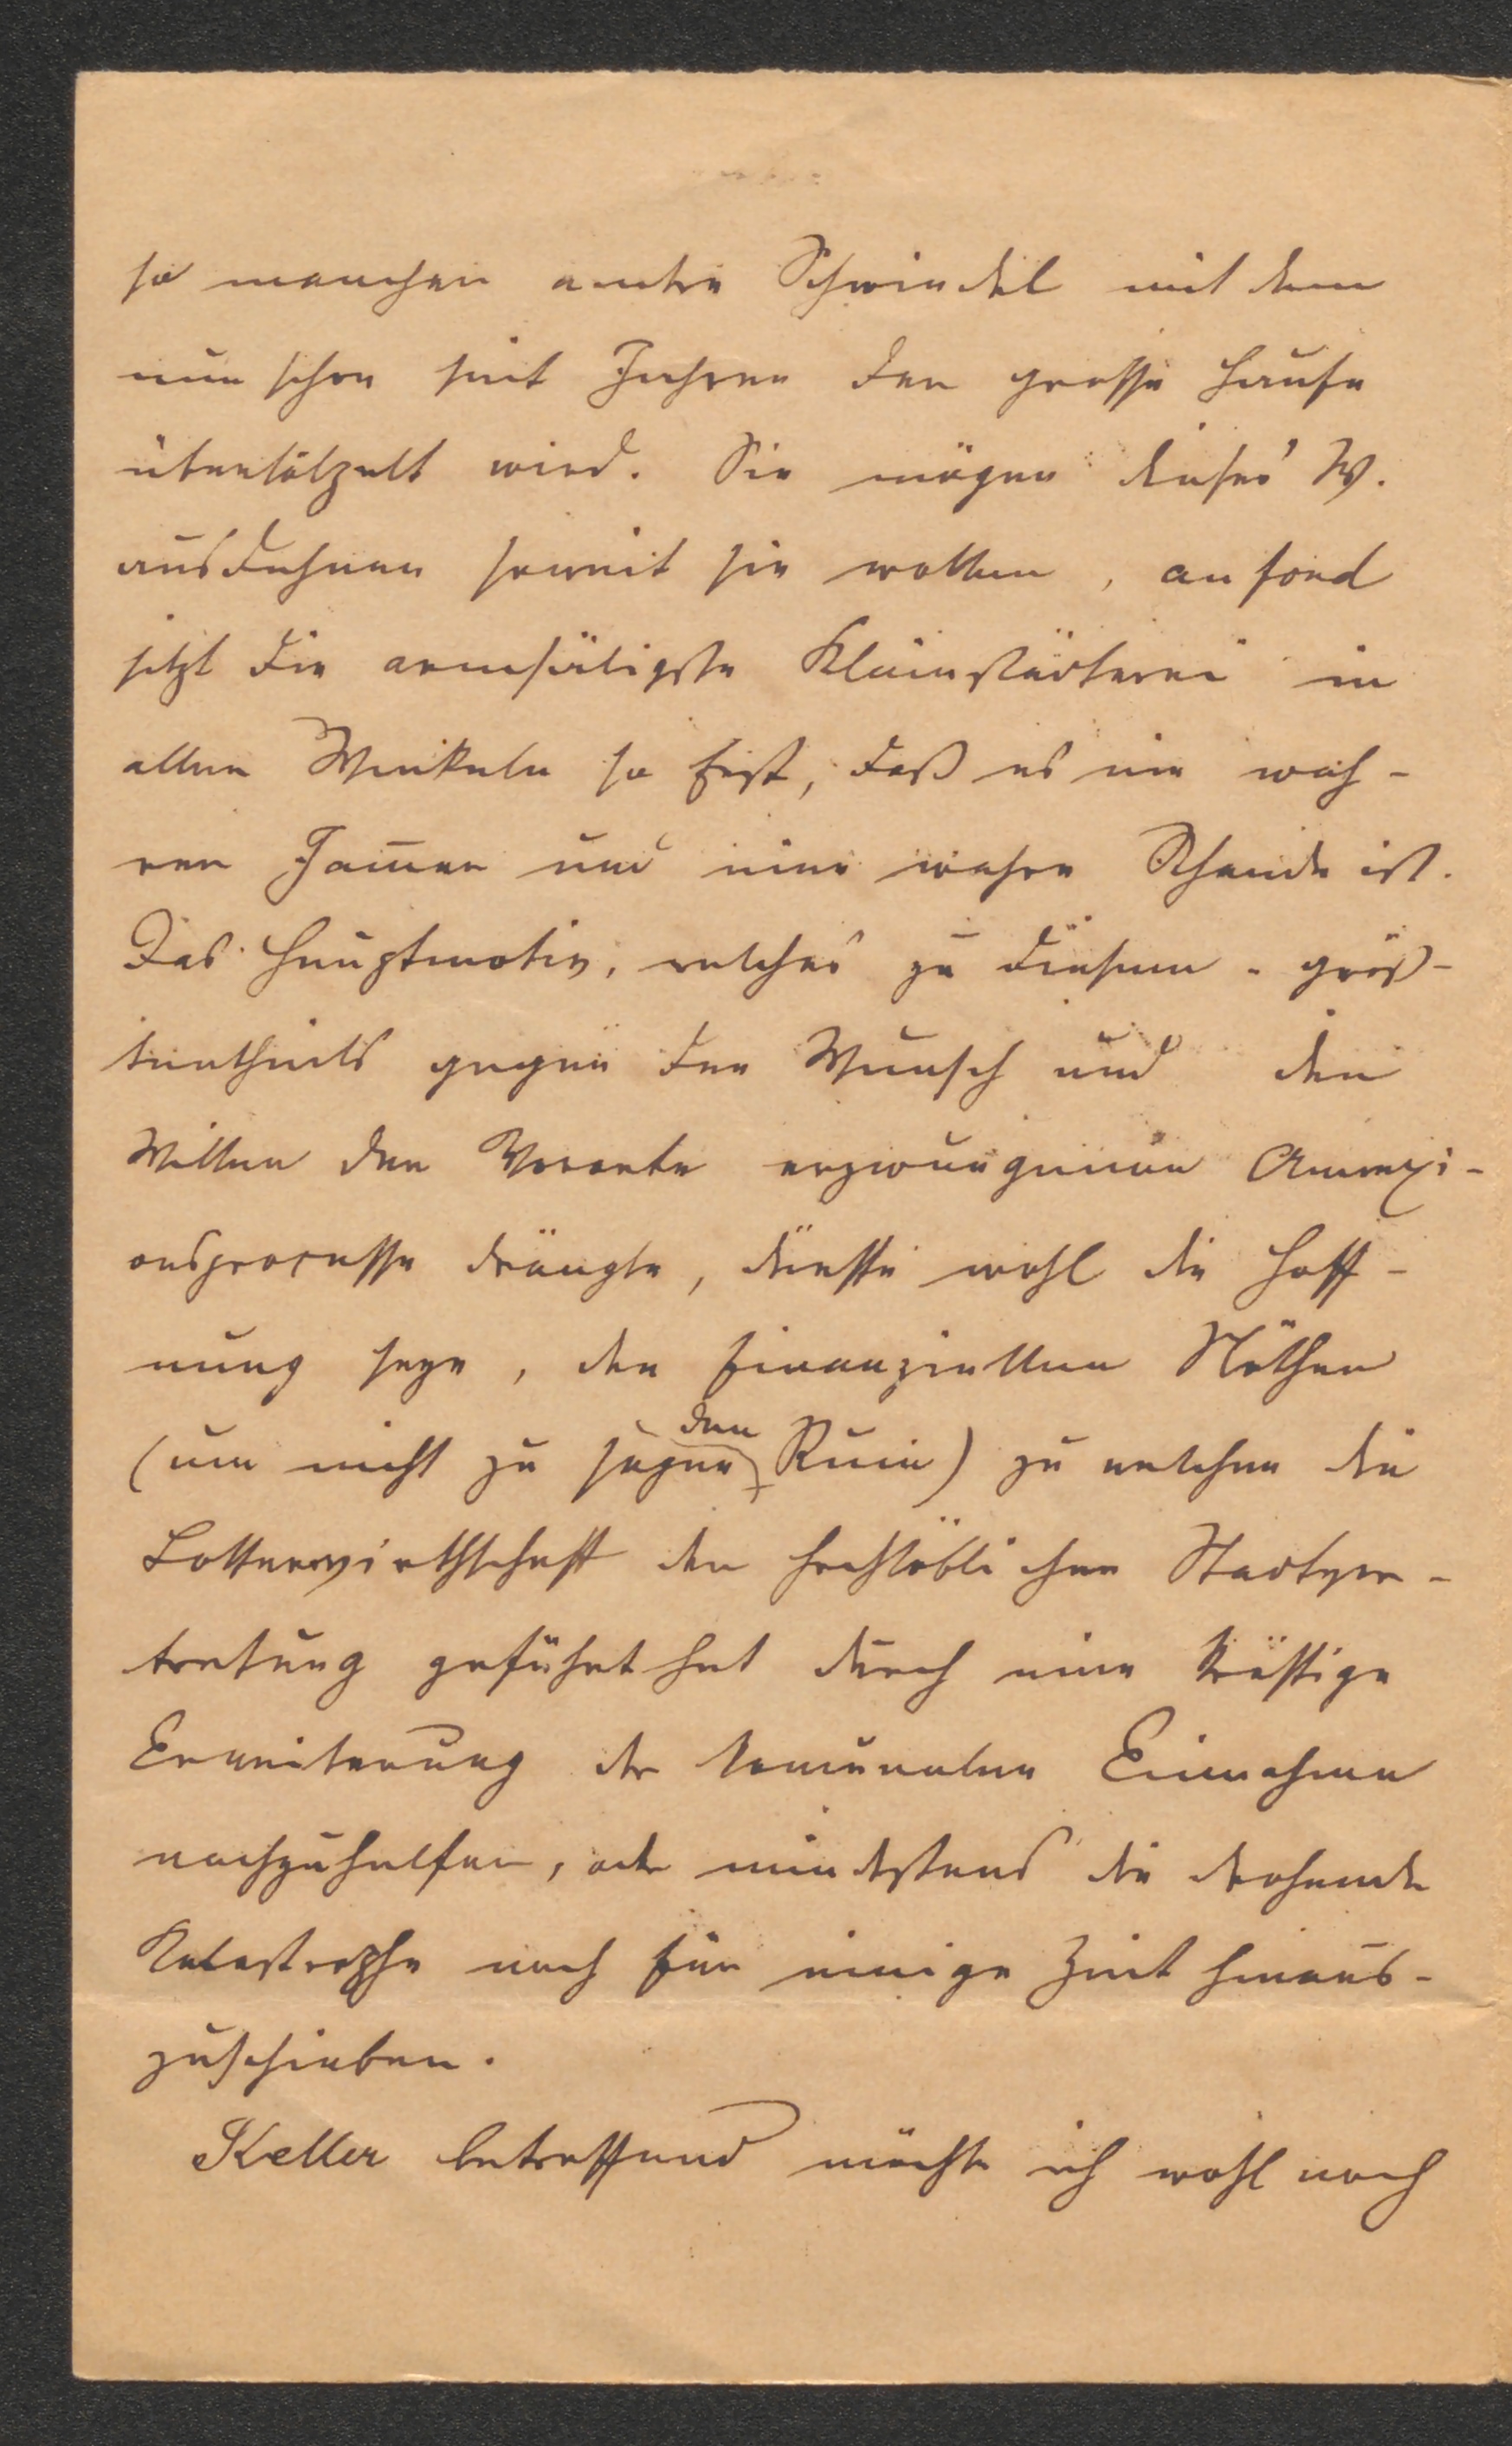 so manchen andre Schwindel mit dem
nun schon seit Jahren der grosse Haufe
übertölpelt wird. Sie mögen dieses W.
ausdehnen soweit sie wollen, au fond
sitzt die armseligste Kleinstädterei in
allen Winkeln so fest, daß es ein wah-
rer Jam̄er und eine wahre Schande ist.
Das Hauptmotiv, welches zu diesem größ-
tentheils gegen den Wunsch und den
Willen der Vororte erzwungenen Annexi-
onsprocesse drängte, dürfte wohl die Hoff-
nung seyn, den finanziellen Nöthen
(um nicht zu sagen den Ruin) zu welchen die
Lotterwirthschaft der hochlöblichen Stadtver-
tretung geführt hat durch eine kräftige
Erweiterung der komunalen Einnahmen
nachzuhelfen, oder mindestens die drohende
Katastrophe noch für einige Zeit hinaus-
zuschieben.
Keller betreffend möchte ich wohl noch